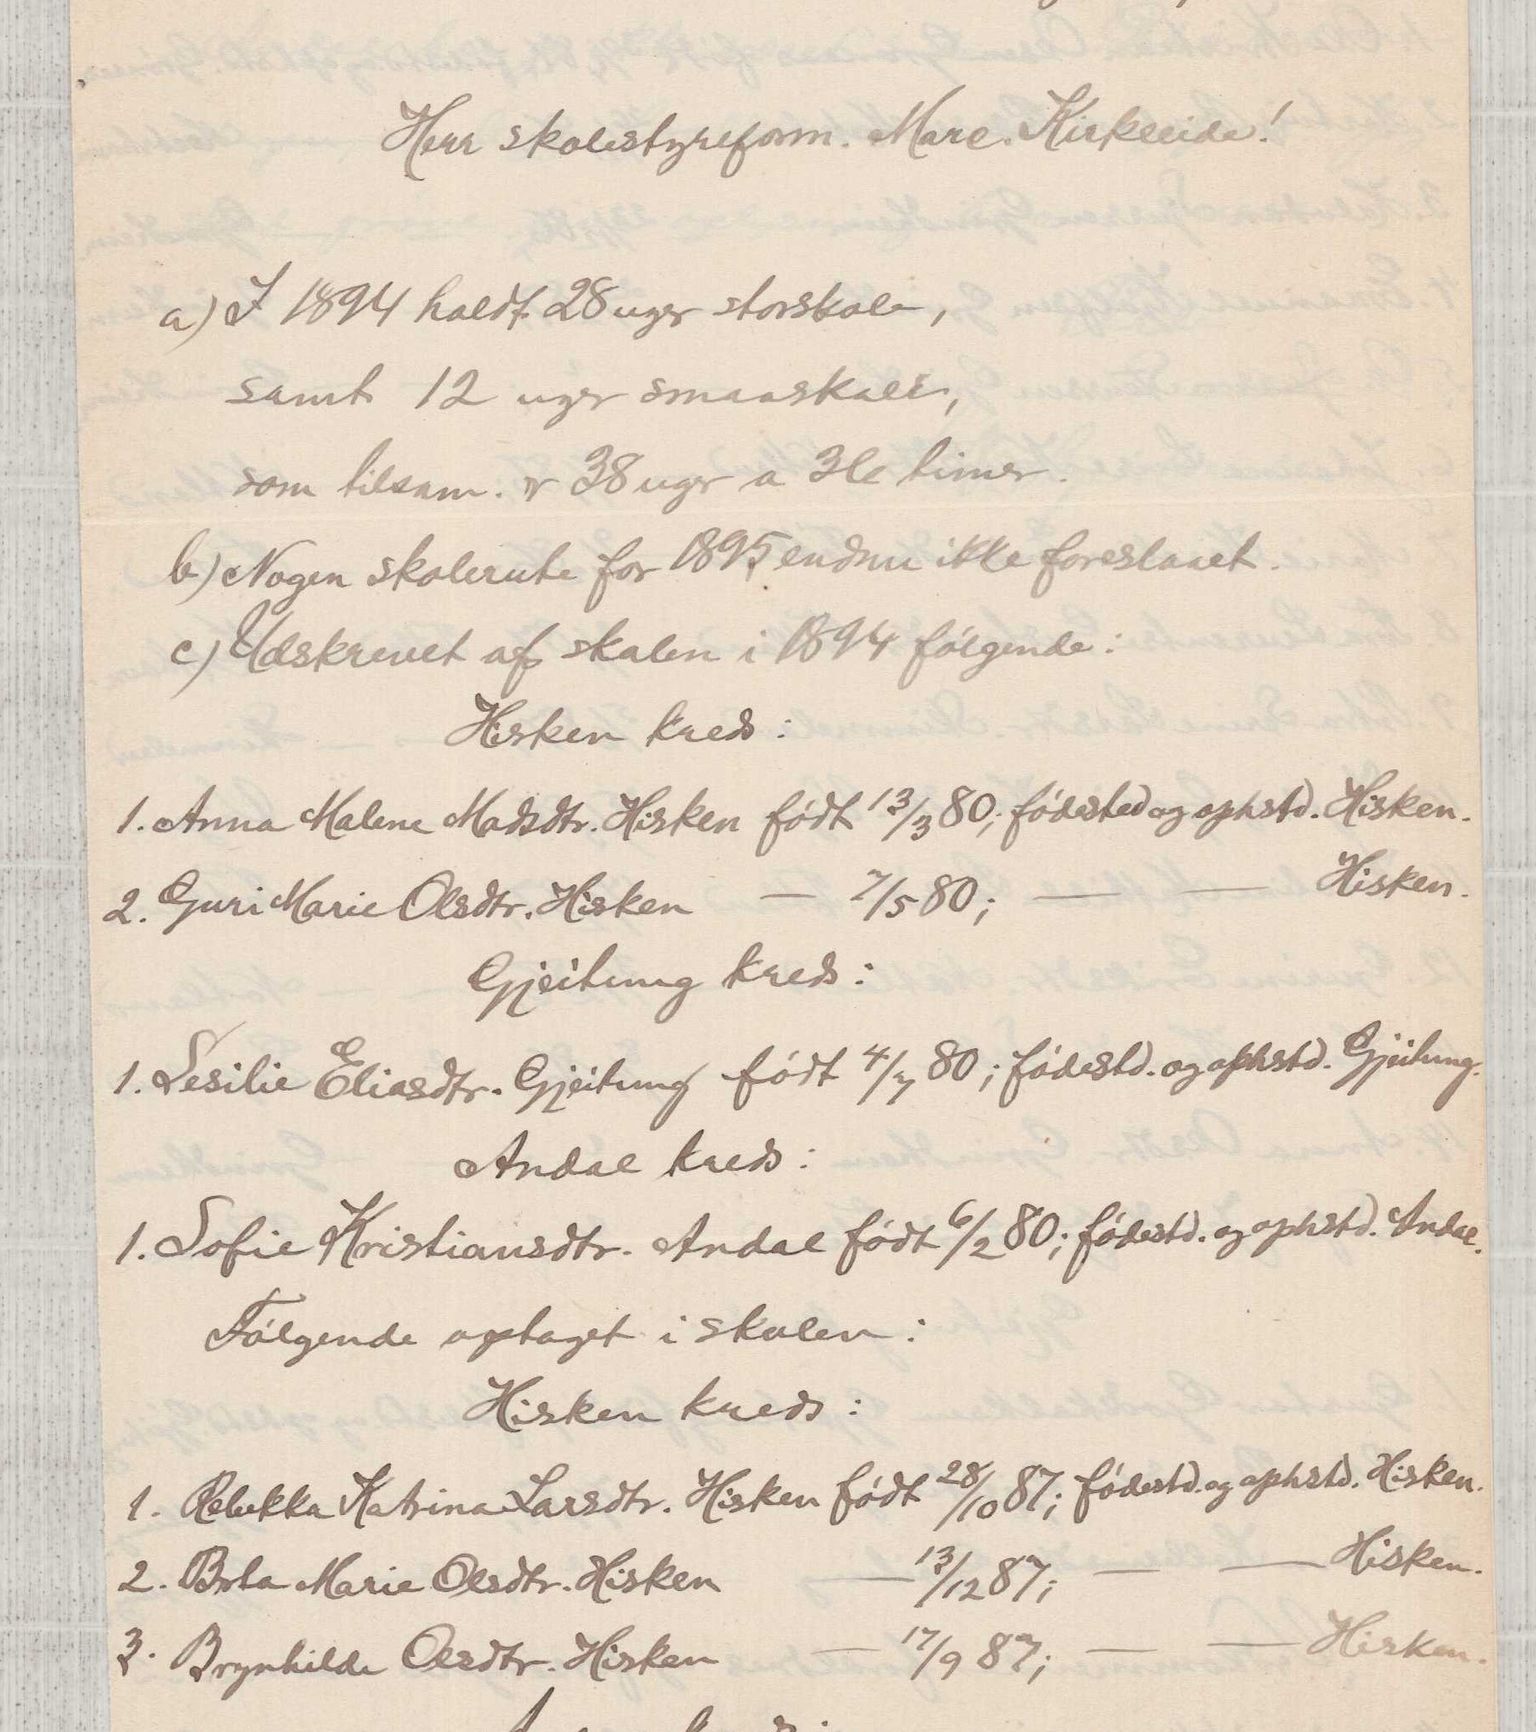 Herr skolestyreform. Marc. Kirkeeide!
a) I 1894 holdt 28 uger storskole,
samt 12 uger smaaskole,
som tilsam. er 38 uger a 36 timer.
b) Nogen skolerute for 1895 endnu ikke foreslaaet.
c) Udskrevet af skolen i 1894 følgende:
Hisken kreds:
1. Anna Malene Madsdtr. Hisken født 13/3 80; fødested og ophstd. Hisken.
2. Guri Marie Olsdtr. Hisken — 7/5 80; — — Hisken.
Gjeitung kreds:
1. Sesilie Eliasdtr. Gjeitung født 4/7 80; fødestd. og ophstd. Gjeitung.
Andal kreds:
1. Sofie Kristiansdtr. Andal født 6/2 80; fødestd. og ophstd. Andal.
Følgende optaget i skolen:
Hisken kreds:
1. Rebekka Katrina Larsdtr. Hisken født 28/10 87; fødestd. og ophstd. Hisken.
2. Brta Marie Olsdtr. Hisken — 13/12 87; — — Hisken.
3. Brynhilde Olsdtr. Hisken — 17/9 87; — — Hisken.